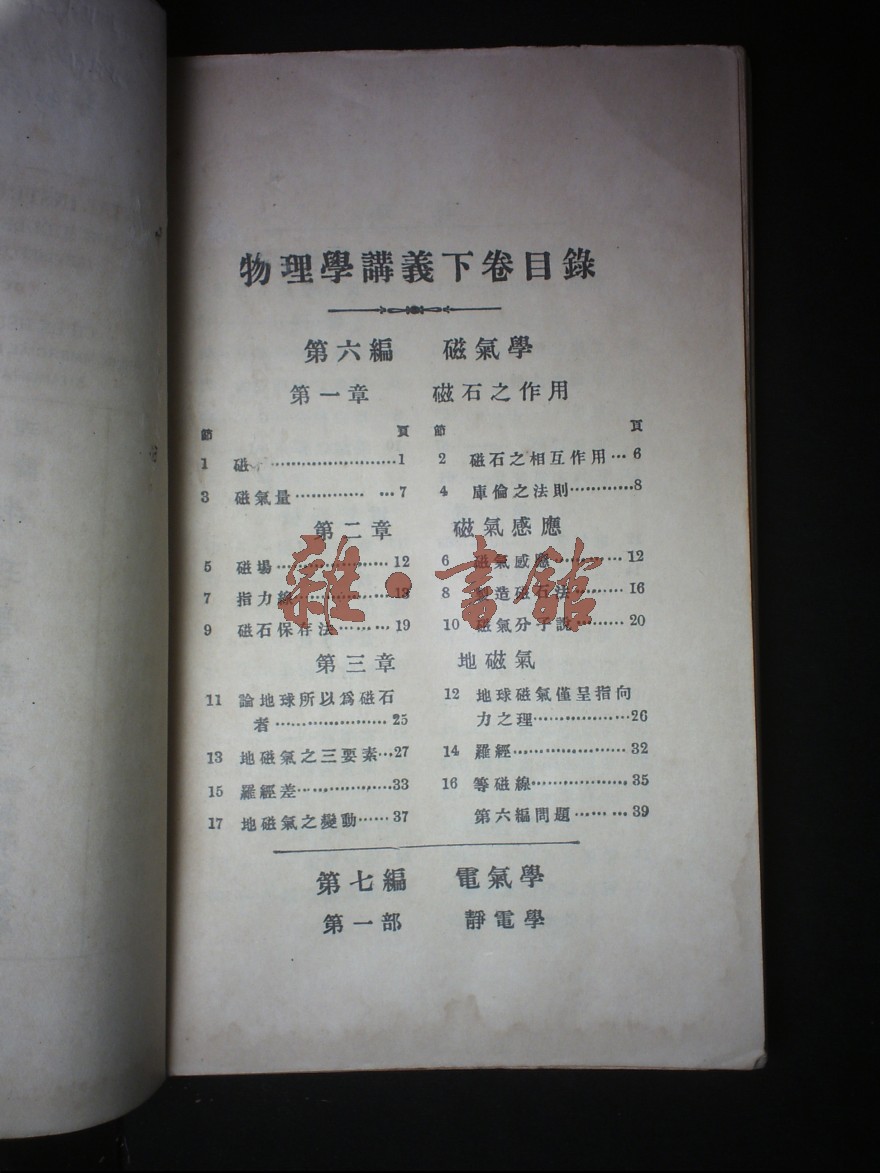 物理學講義下卷目錄
第六編 磁氣學
第一章 磁石之作用
節 頁 節 頁
1 磁 ……………………1 2 磁石之相互作用…6
3 磁氣量………… …7 4 庫倫之法則…………8
第二章 磁氣感應
5 磁場………………… 12 6 磁氣感應………… 12
7 指力線………………13 8 製造磁石法……… 16
9 磁石保存法……… 19 10 磁氣分子說……… 20
第三章 地磁氣
11 論地球所以爲磁石 12 地球磁氣僅呈指向
者………………… 25 力之理………………26
13 地磁氣之三要素…27 14 羅經………………… 32
15 羅經差………………33 16 等磁線………………35
17 地磁氣之變動……37 第六編問題……… 39
第七編 電氣學
第一部 靜電學
雜·書館